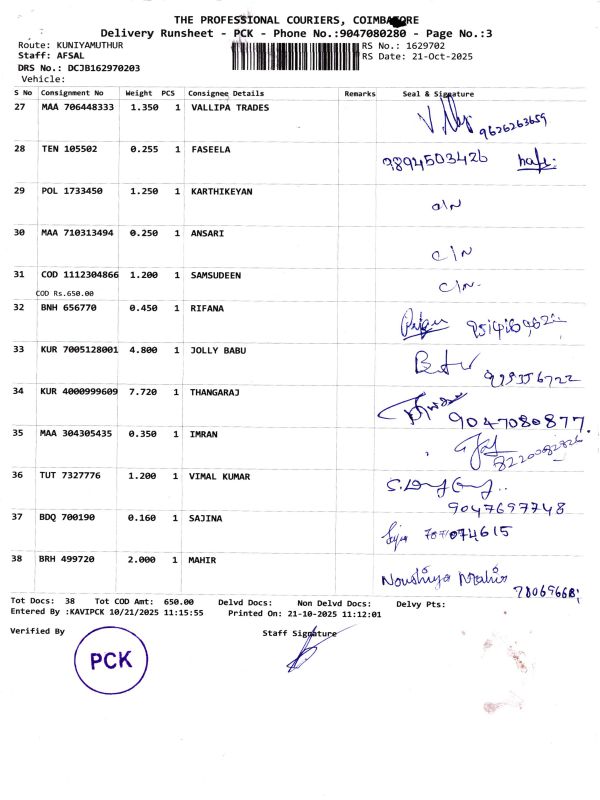 THE PROFESSIONAL COURIERS, COIMBATORE
Delivery Runsheet - PCK - Phone No.:9047080280 - Page No.:3
Route: KUNIYAMUTHUR RS No.: 1629702
Staff: AFSAL RS Date: 21-Oct-2025
DRS No.: DCJB162970203
Vehicle:
S No Consignment No Weight PCS Consignee Details Remarks Seal & Signature
27 MAA 706448333 1.350 1 VALLIPA TRADES 9626263659
28 TEN 105502 0.255 1 FASEELA 9894503426
29 POL 1733450 1.250 1 KARTHIKEYAN
30 MAA 710313494 0.250 1 ANSARI C/N
31 COD 1112304866 1.200 1 SAMSUDEEN C/N
COD Rs.650.00
32 BNH 656770 0.450 1 RIFANA
33 KUR 7005128001 4.800 1 JOLLY BABU
34 KUR 4000999609 7.720 1 THANGARAJ 9047080877.
35 MAA 304305435 0.350 1 IMRAN 8220082826
36 TUT 7327776 1.200 1 VIMAL KUMAR
9047697748
37 BDQ 700190 0.160 1 SAJINA
38 BRH 499720 2.000 1 MAHIR
Noushiya Mahir
Tot Docs: 38 Tot COD Amt: 650.00 Delvd Docs: Non Delvd Docs: Delvy Pts:
Entered By :KAVIPCK 10/21/2025 11:15:55 Printed On: 21-10-2025 11:12:01
Verified By Staff Signature
PCK